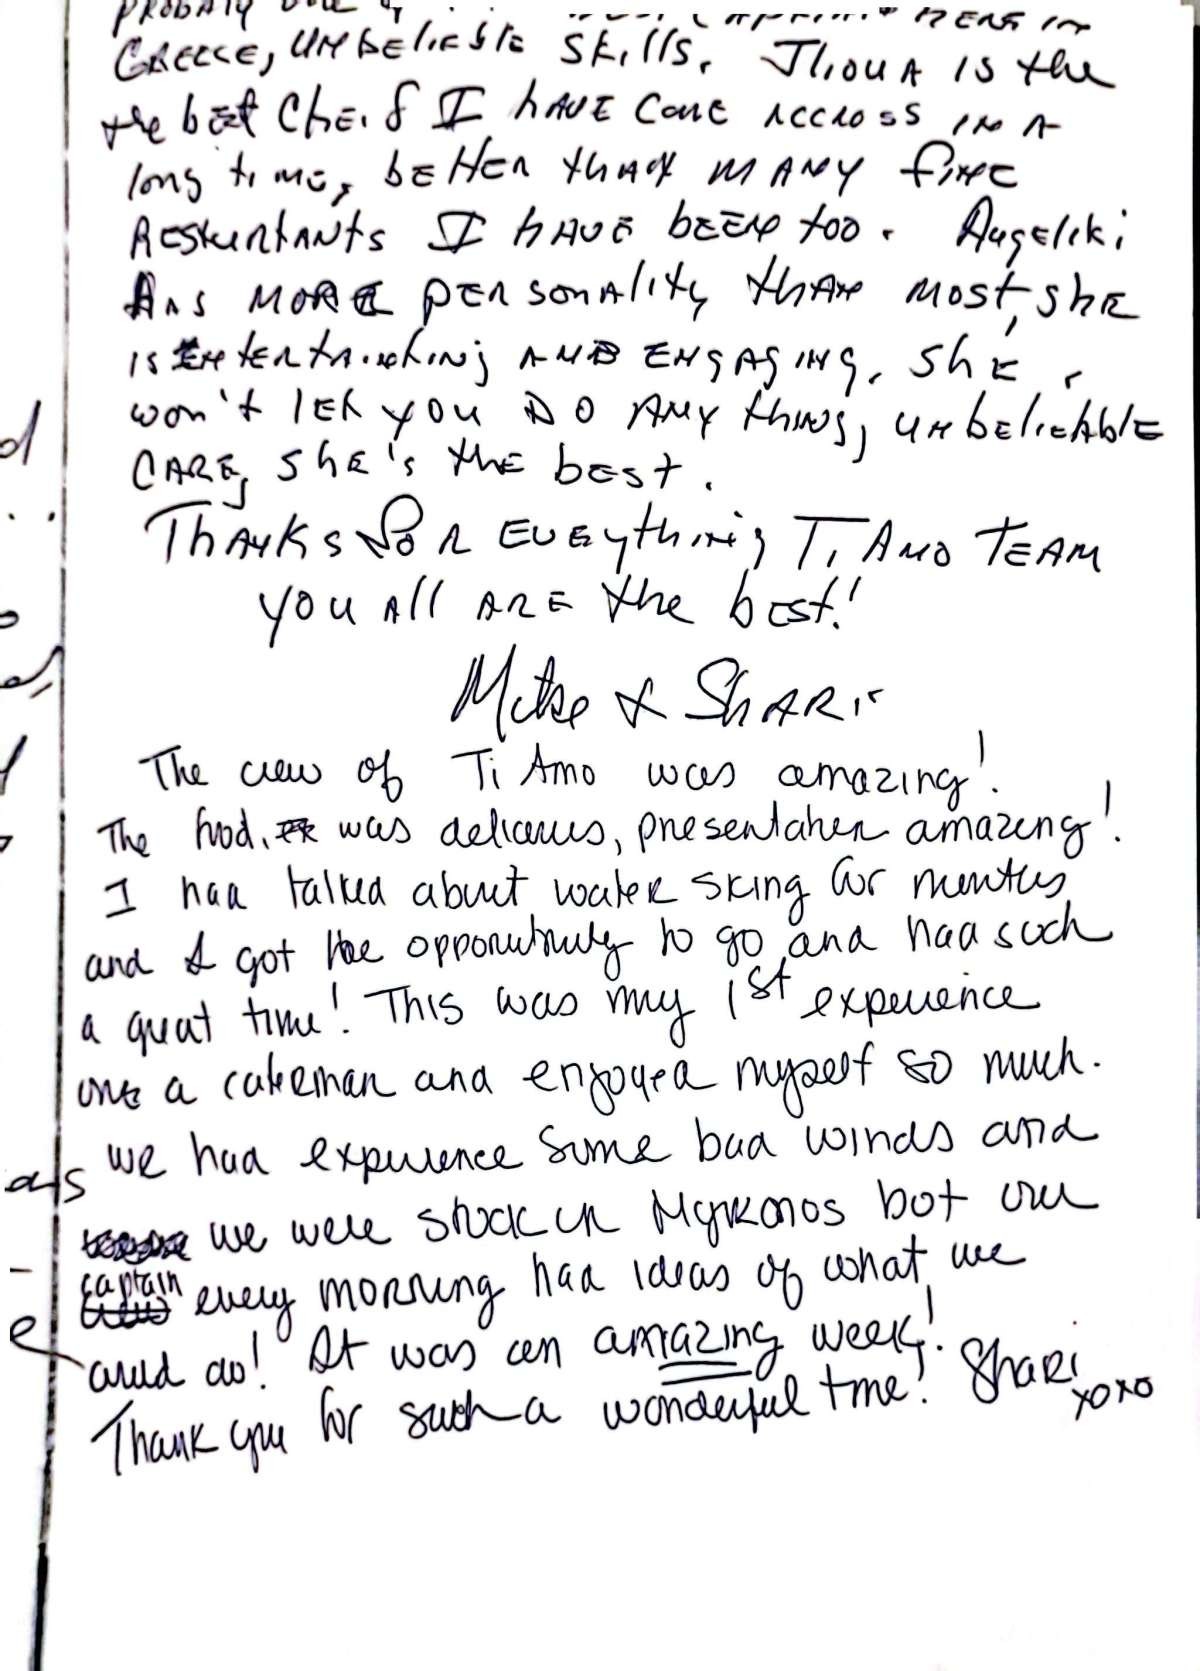 PROBABLY ONE OF HERE IN
GREECE, UNBELIEBLE SKILLS. JLIOUA IS the
the best Cheif I HAVE COME ACCROSS IN A
long time, better than MANY FINE
RESTURTANTS I HAVE been too. Angeliki
HAS MORE PERSONALITY than most, she
is entertainking AND ENGAGING, She
won't let you DO ANY thing, unbelieAble
CARE, she's the best.
Thanks for Eveything TI AMO TEAM
you All ARE the best!
Mike & SHARI
The crew of Ti Amo was amazing!
The food, was delicious, presentation amazing!
I had talked about water skiing for months
and I got the opportunity to go and had such
a great time! This was my 1st experience
one a catemaran and enjoyed myself so much.
we had experience some bad winds and
we were stuck in Mykonos but our
captain every morning had ideas of what we
could do! It was an amazing week!
Thank you for such a wonderful time! Shari
xoxo
d
ds
e